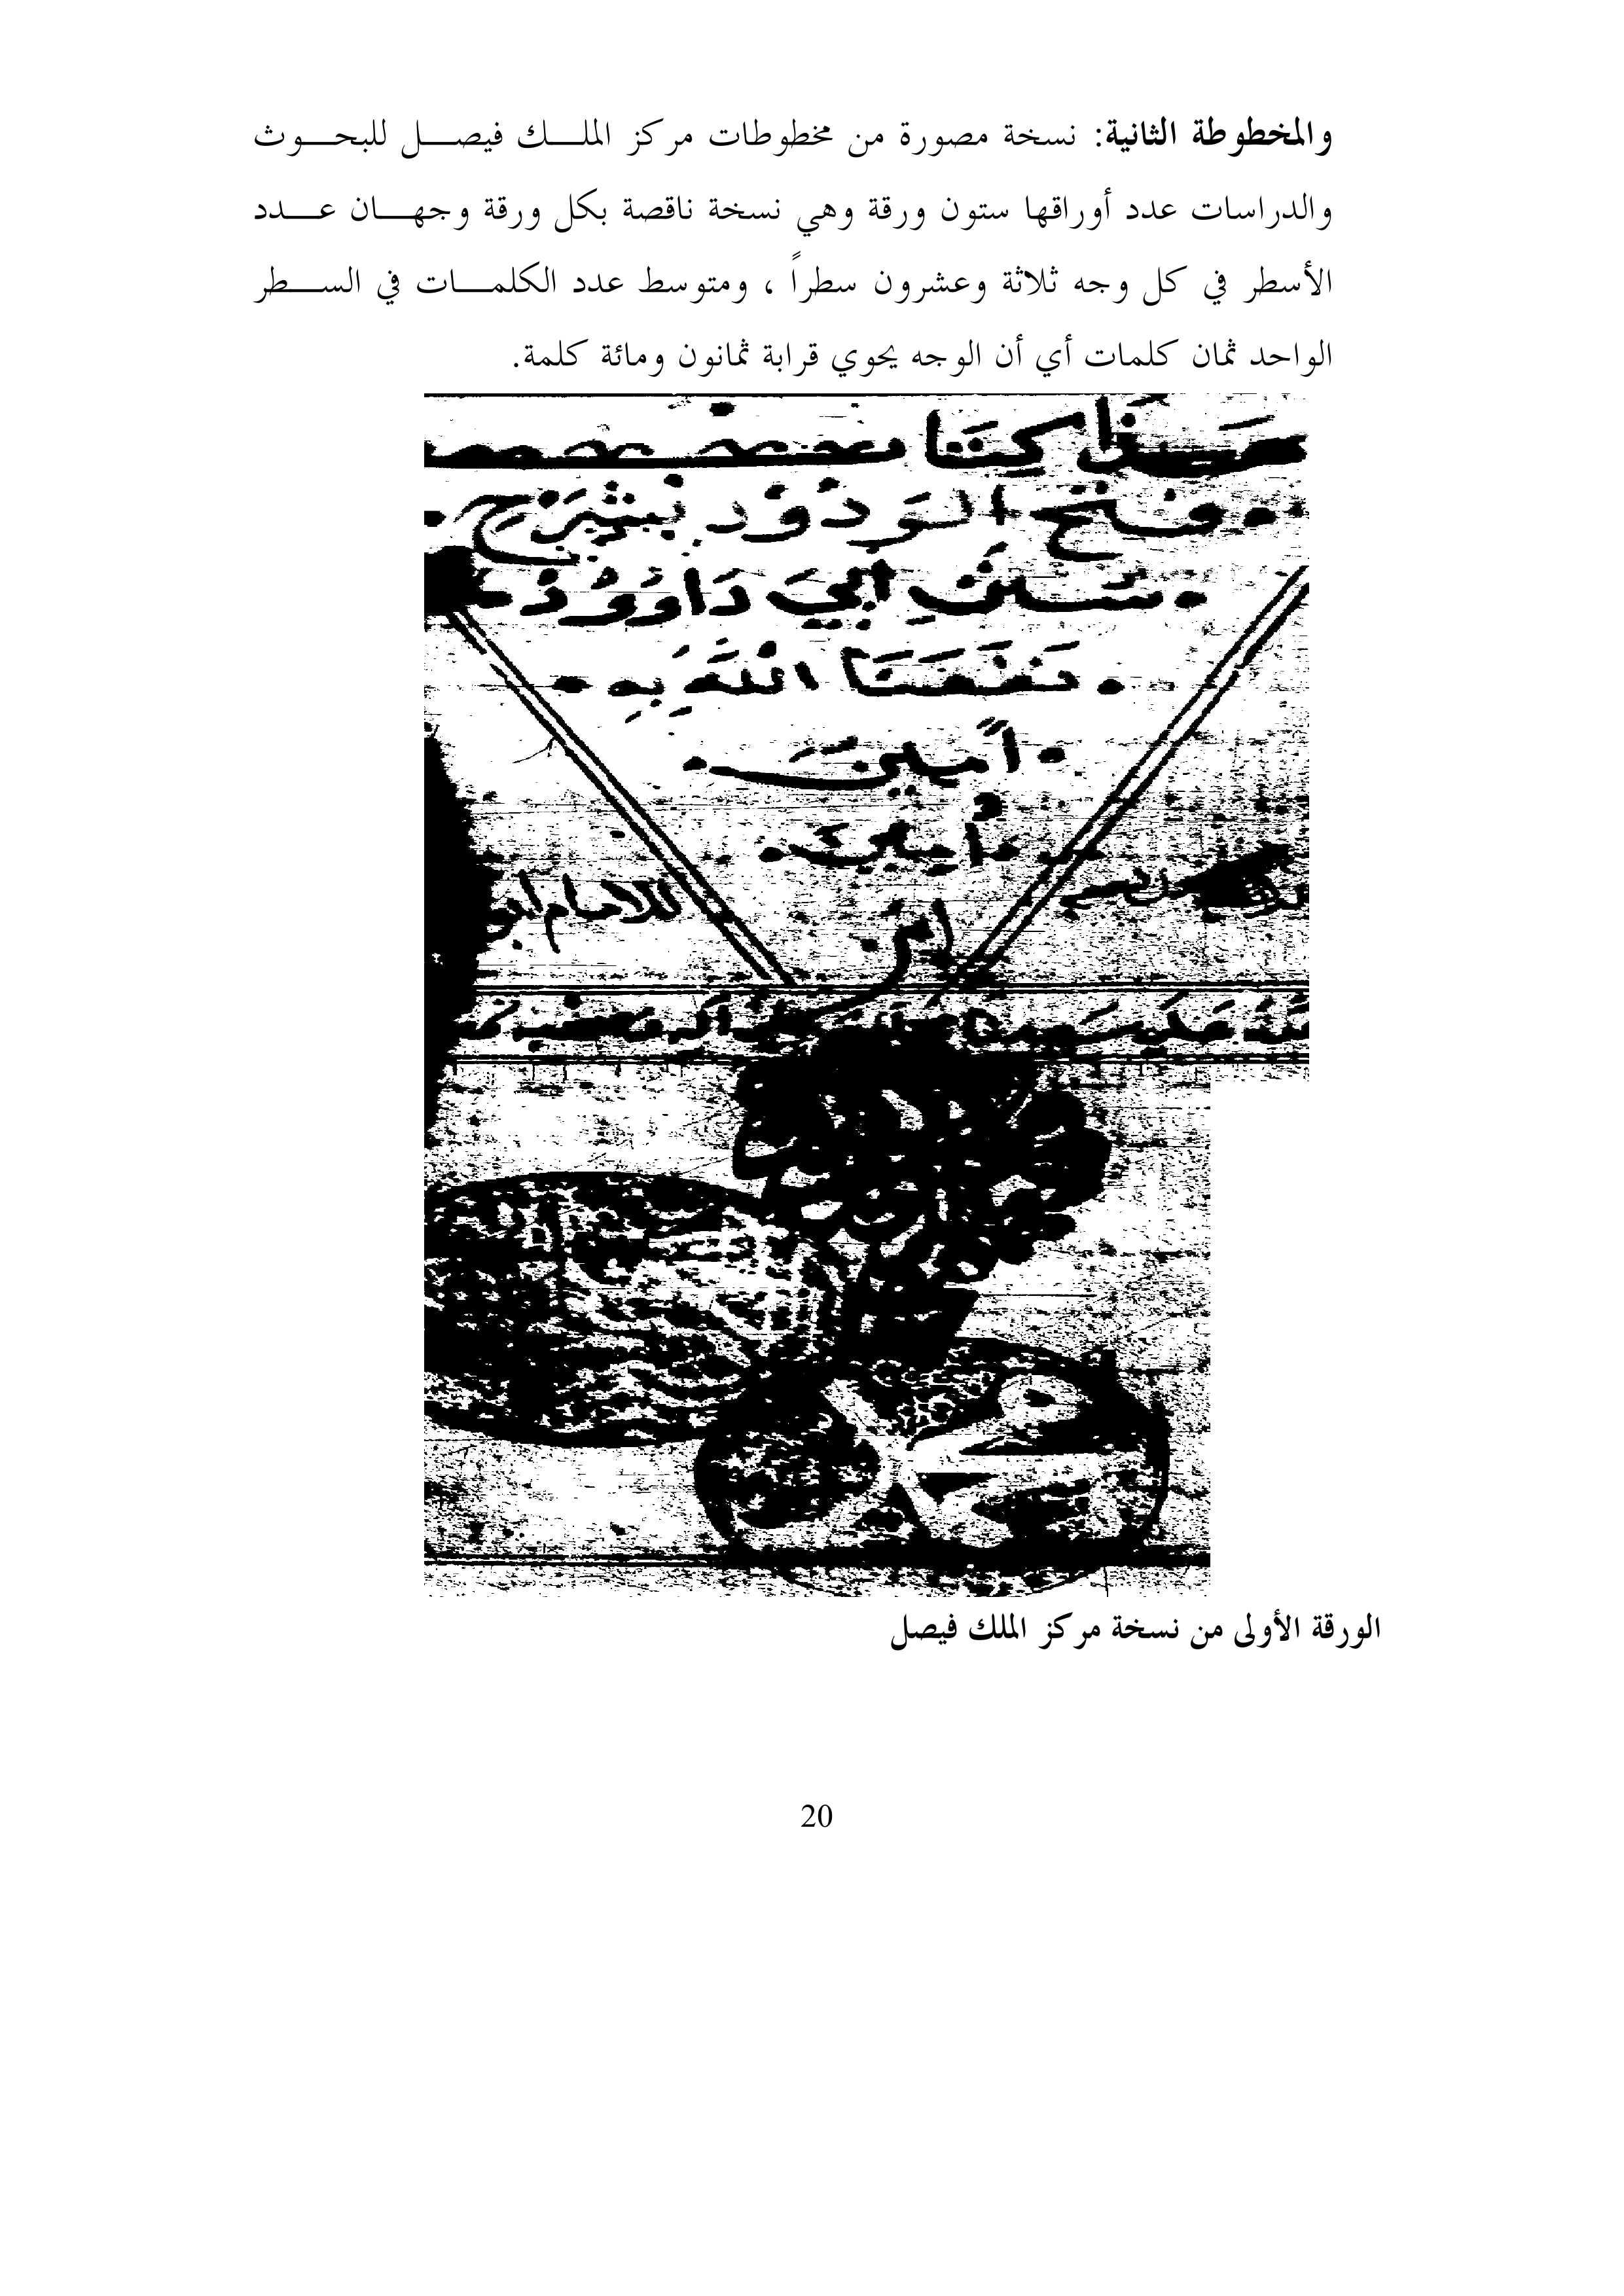 والمخطوطة الثانية: نسخة مصورة من مخطوطات مركز الملك فيصل للبحوث
والدراسات عدد أوراقها ستون ورقة وهي نسخة ناقصة بكل ورقة وجهان عدد
الأسطر في كل وجه ثلاثة وعشرون سطراً ، ومتوسط عدد الكلمات في السطر
الواحد ثمان كلمات أي أن الوجه يحوي قرابة ثمانون ومائة كلمة.
هذا كتاب
فتح الودود بشرح
سنن أبي داوود
نفعنا الله به
امين
امين
للامام ابو
امين
الورقة الأولى من نسخة مركز الملك فيصل
20